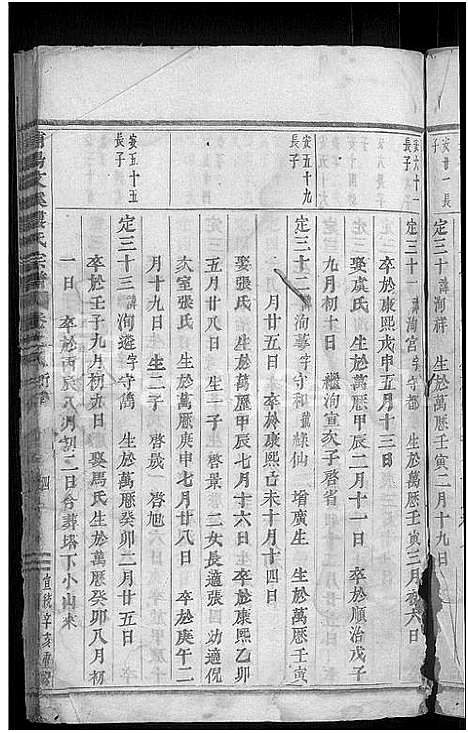 安廿一長子
定三十 諱洵祥 生於萬厯壬寅二月十九日
安六十一長子
定三十一 諱洵宮字守都 生於萬厯壬寅三月初六日
卒於康熙戊申五月十三日
娶虞氏 生於萬厯甲辰二月十一日 卒於順治戊子
九月初十日 繼洵宣次子啓省
安五十九長子
定三十二 諱洵 字守和號綠仙 增廣生 生於萬厯壬寅
月廿五日 卒於康熙己未十月十四日
娶張氏 生於萬厯甲辰七月十六日 卒於康熙乙卯
五月廿八日 生二子 啓景 二女長適張 幼適倪
次室張氏 生於萬厯庚申七月廿八日 卒於庚午二
月十九日 生二子 啓晟 啓旭
安五十五長子
定三十三 諱洵 字守簡 生於萬厯癸卯二月廿五日
卒於壬子九月初九日 娶馬氏 生於萬厯癸卯八月初
一日 卒於丙辰八月初二日合葬塔下小山來
氏宗譜
宣統辛亥重修